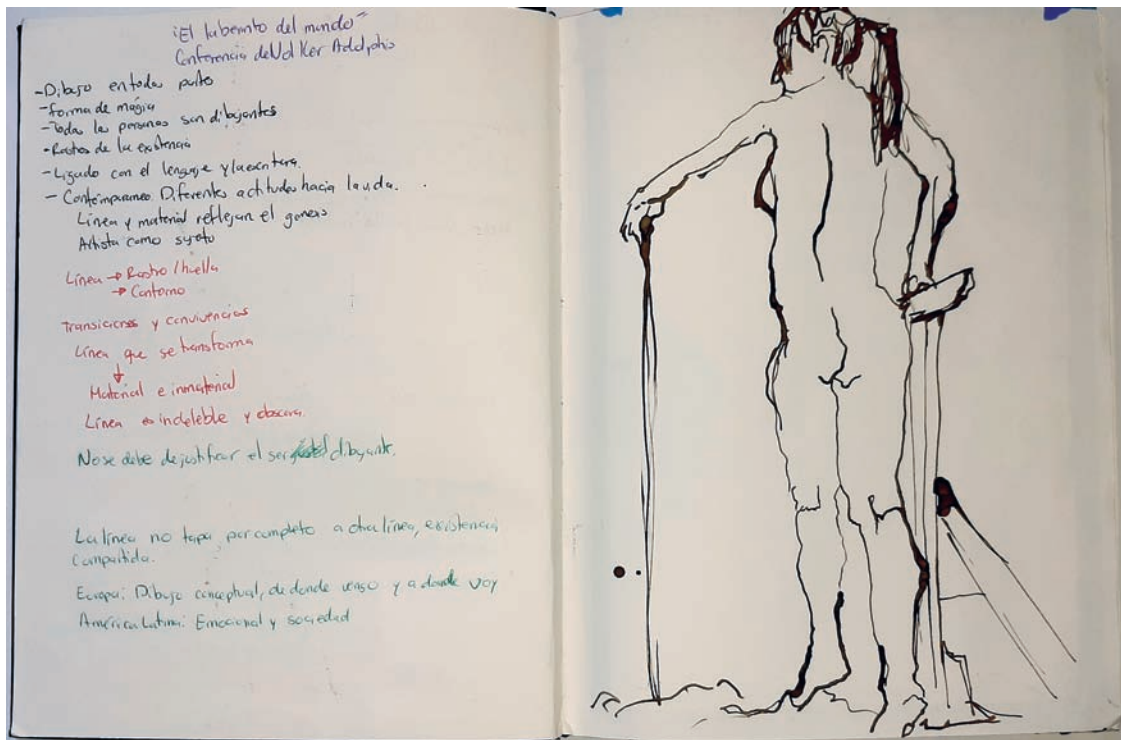 "El laberinto del mundo"
Conferencia de Volker Adolphs
-Dibujo en todas partes
-forma de mágia
-Todas las personas son dibujantes
-Rastros de la existencia
-Ligado con el lenguaje y la escritura.
-Contemporaneo. Diferentes actitudes hacia la vida.
Línea y material reflejan el
Artista como sujeto
Línea → Rastro / huella
→ Contorno
Transiciones y convivencias
Línea que se transforma
↓
Material e inmaterial
Línea es indeleble y obscura.
No se debe de justificar el ser dibujante.
La línea no tapa por completo a otra línea, existencia
compartida.
Europa: Dibujo conceptual, de donde vengo y a donde voy
América Latina: Emocional y sociedad